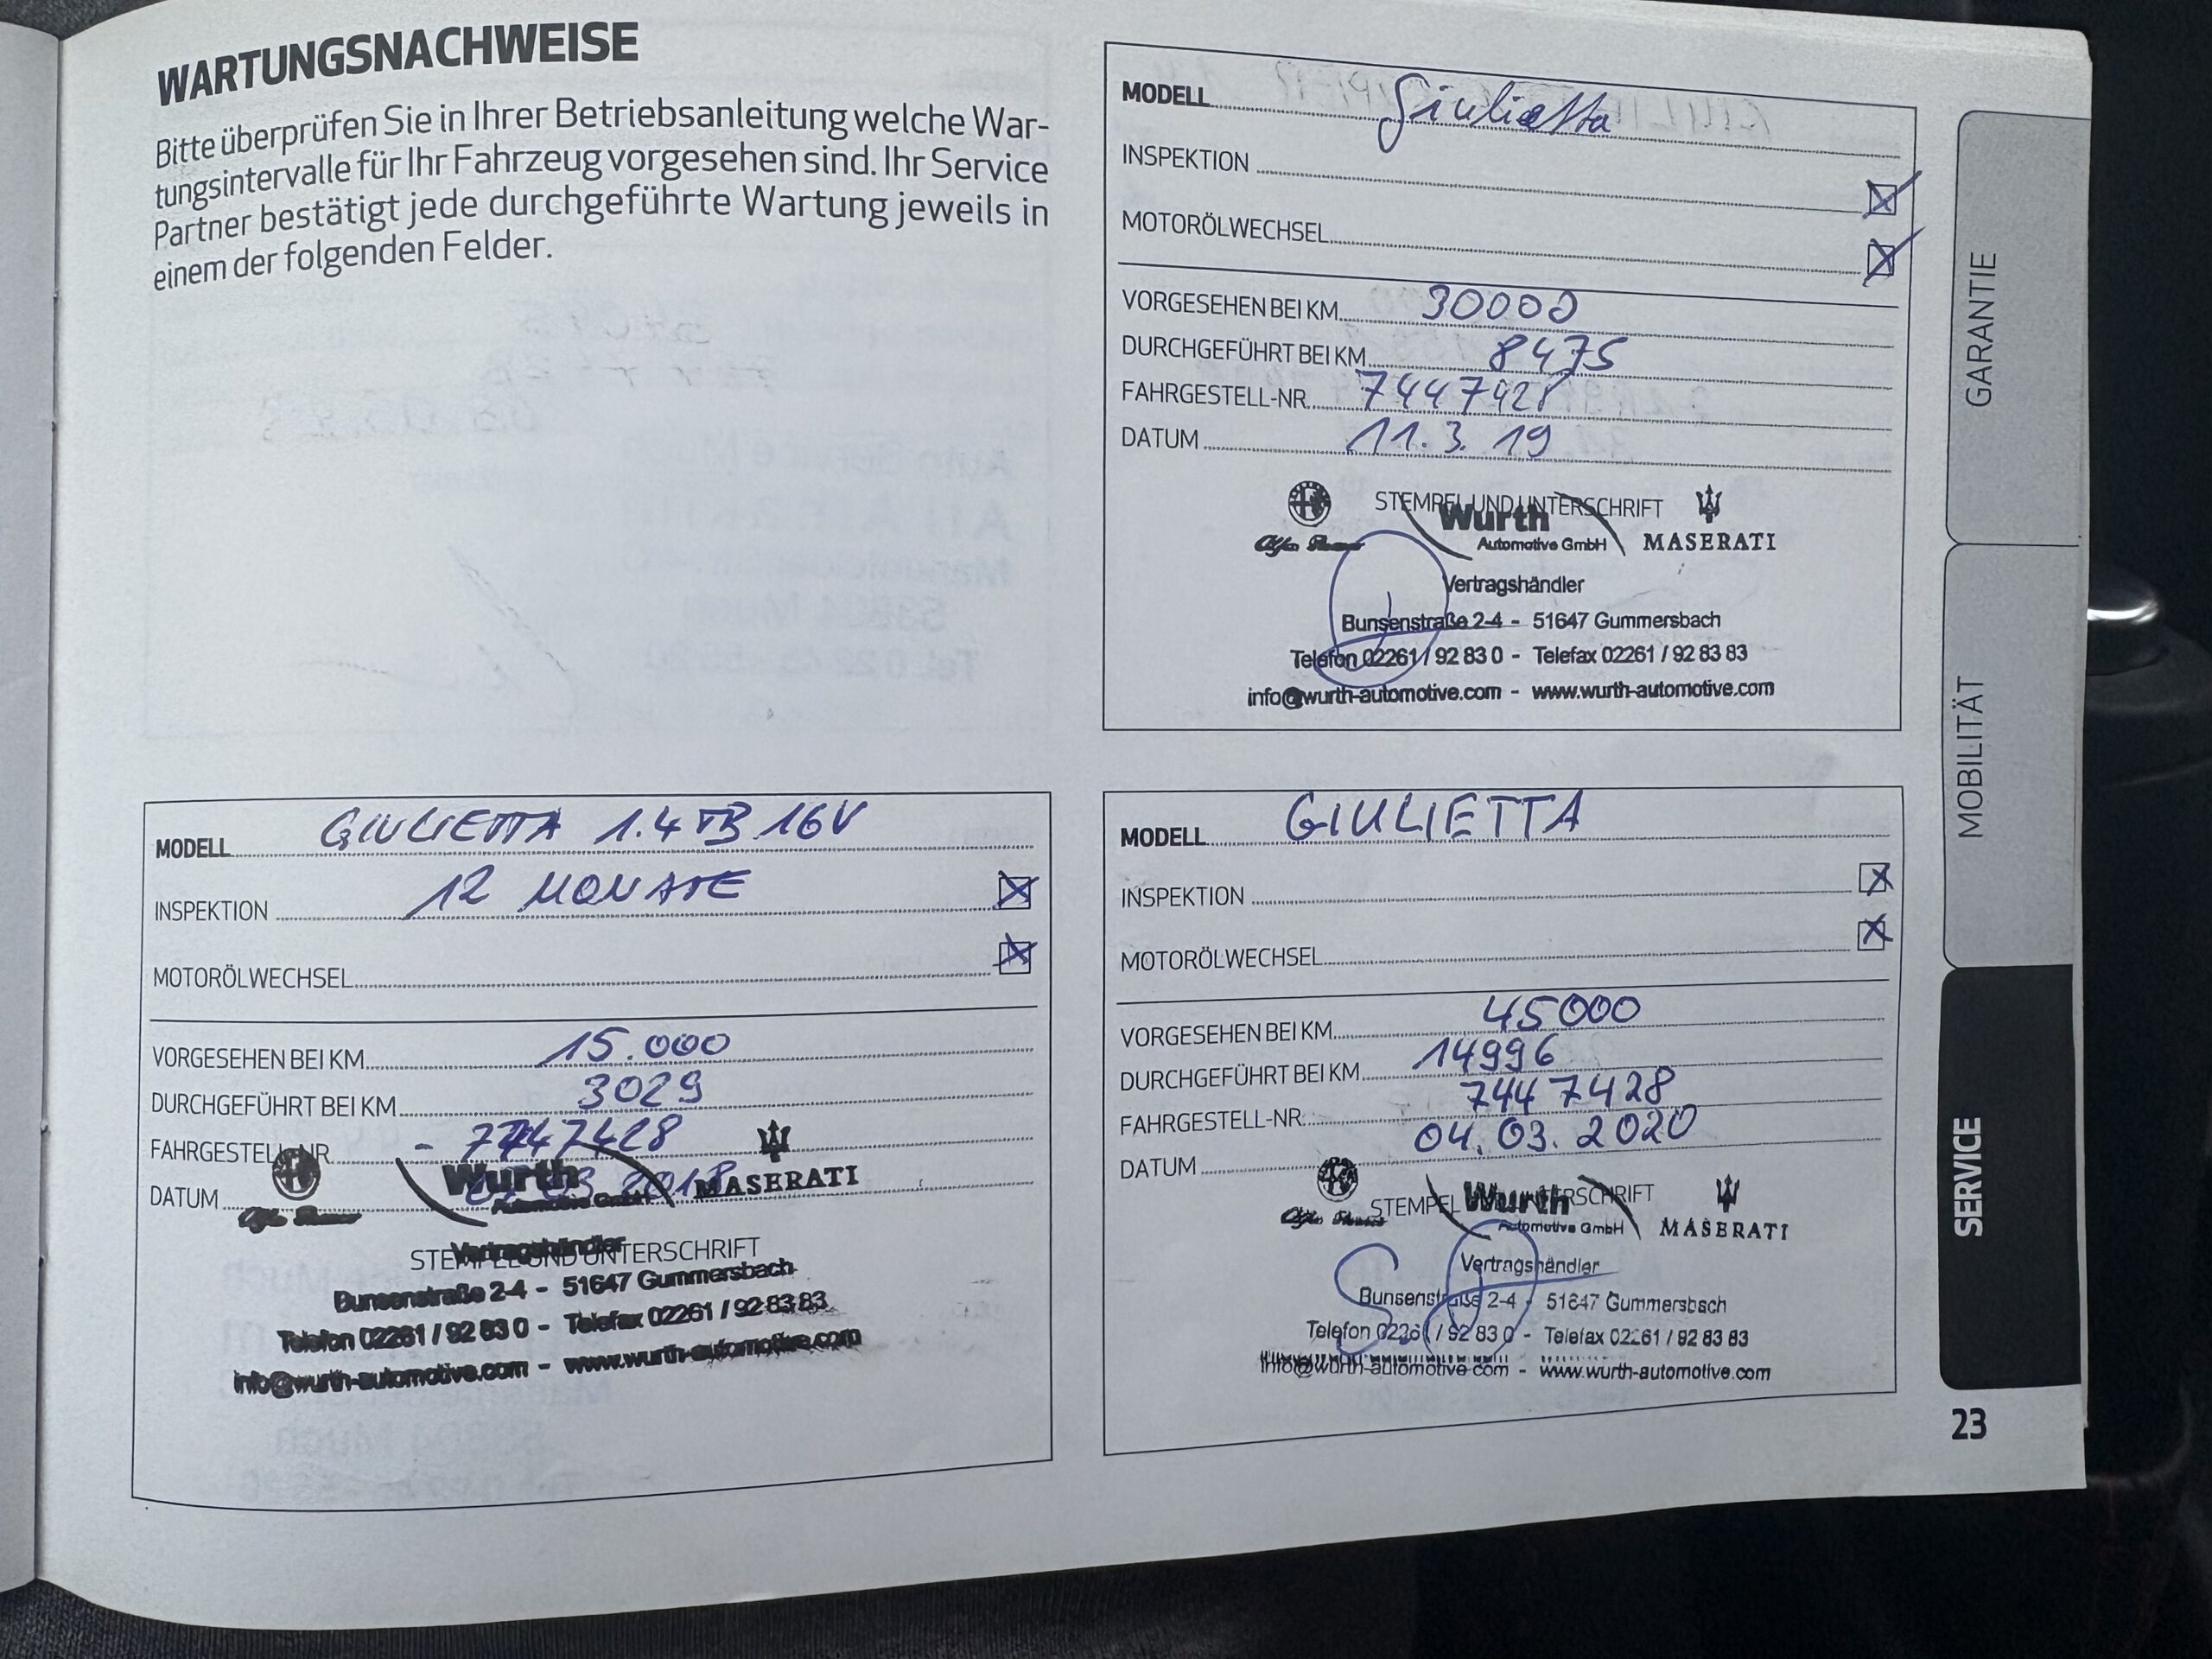 WARTUNGSNACHWEISE
Bitte überprüfen Sie in Ihrer Betriebsanleitung welche War-
tungsintervalle für Ihr Fahrzeug vorgesehen sind. Ihr Service
Partner bestätigt jede durchgeführte Wartung jeweils in
einem der folgenden Felder.
MODELL GIULIETTA 1.4 TB 16V
INSPEKTION 12 MONATE
MOTORÖLWECHSEL
VORGESEHEN BEI KM 15.000
DURCHGEFÜHRT BEI KM 3029
FAHRGESTELL-NR. - 7447428
DATUM 03 2018
Wurth
Automotive GmbH
MASERATI
STEMPEL UND UNTERSCHRIFT
Vertragshändler
Bunsenstraße 2-4 - 51647 Gummersbach
Telefon 02261 / 92 83 0 - Telefax 02261 / 92 83 83
info@wurth-automotive.com - www.wurth-automotive.com
MODELL Giulietta
INSPEKTION
MOTORÖLWECHSEL
VORGESEHEN BEI KM 30000
DURCHGEFÜHRT BEI KM 8475
FAHRGESTELL-NR. 7447428
DATUM 11.3.19
STEMPEL UND UNTERSCHRIFT
Alfa Romeo
Wurth
Automotive GmbH
MASERATI
Vertragshändler
Bunsenstraße 2-4 - 51647 Gummersbach
Telefon 02261 / 92 83 0 - Telefax 02261 / 92 83 83
info@wurth-automotive.com - www.wurth-automotive.com
MODELL GIULIETTA
INSPEKTION
MOTORÖLWECHSEL
VORGESEHEN BEI KM 45000
DURCHGEFÜHRT BEI KM 14996
FAHRGESTELL-NR. 7447428
DATUM 04.03.2020
STEMPEL UND UNTERSCHRIFT
Alfa Romeo
Wurth
Automotive GmbH
MASERATI
Vertragshändler
Bunsenstraße 2-4 - 51647 Gummersbach
Telefon 02261 / 92 83 0 - Telefax 02261 / 92 83 83
info@wurth-automotive.com - www.wurth-automotive.com
GARANTIE
MOBILITÄT
SERVICE
23